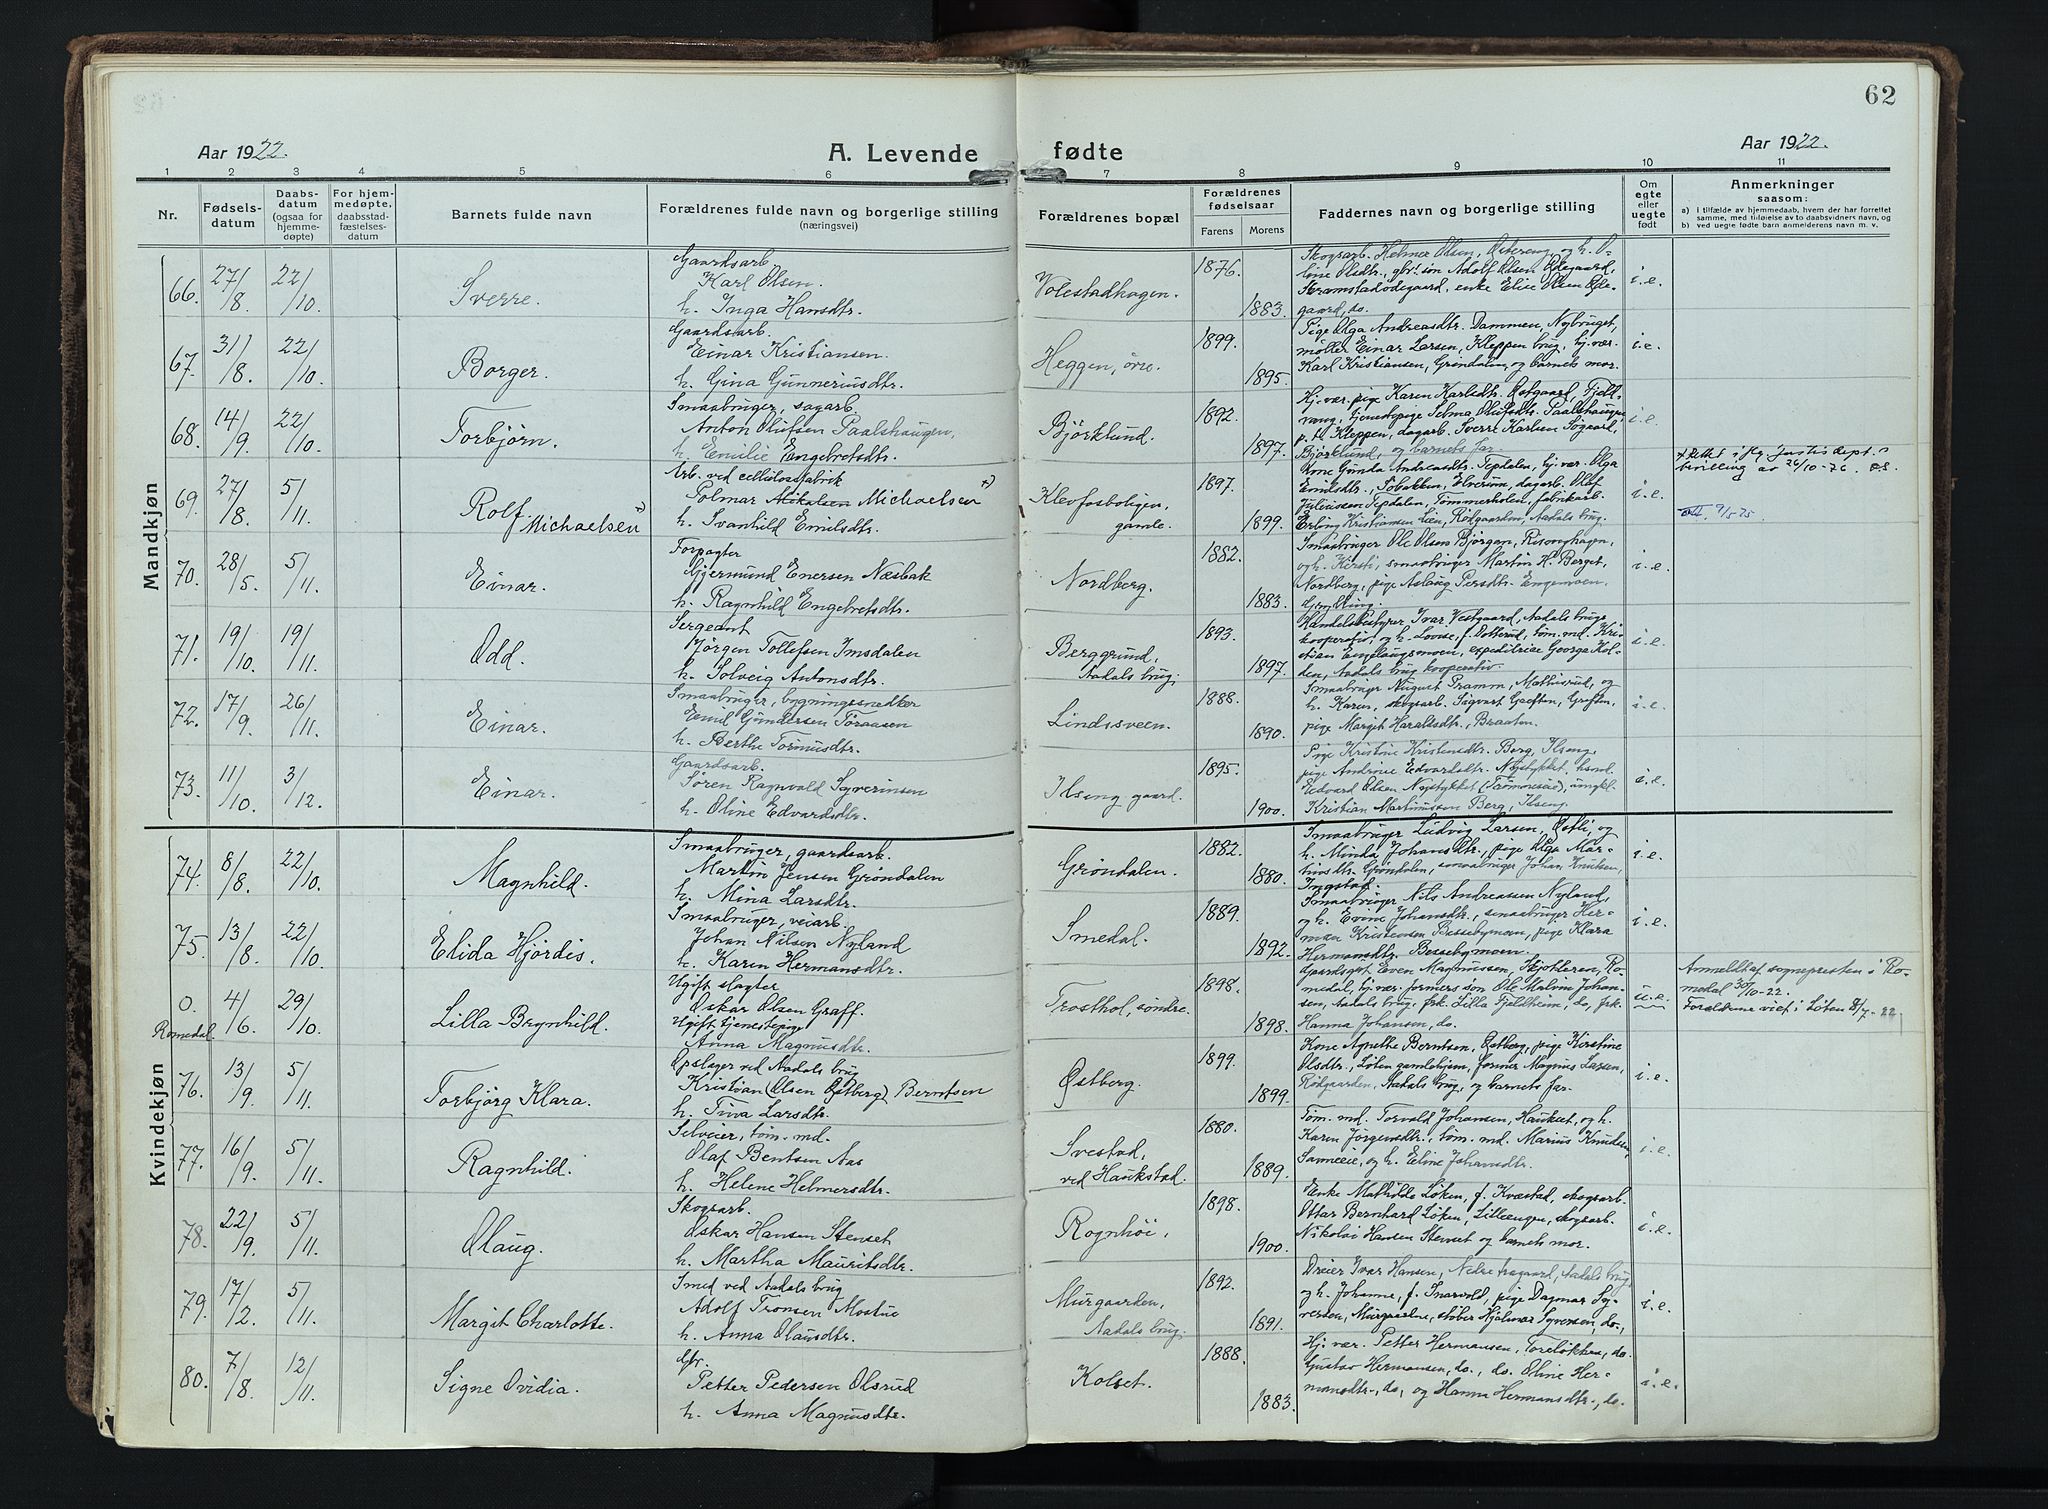 62
Aar 1922.
A. Levende fødte
Aar 1922.
1 2 3 4 5 6 7 8 9 10 11
Nr.
Fødselsdatum
Daabsdatum (ogsaa for hjemmedøpte)
For hjemmedøpte, daabsstadfæstelsesdatum
Barnets fulde navn
Forældrenes fulde navn og borgerlige stilling (næringsvei)
Forældrenes bopæl
Forældrenes fødselsaar
Farens
Morens
Faddernes navn og borgerlige stilling
Om egte eller uegte født
Anmerkninger saasom:
a) I tilfælde av hjemmedaab, hvem der har forrettet samme, med tilføielse av to daabsvidners navn, og
b) ved uegte fødte barn anmelderens navn m. v.
Mandkjøn
66. 27/8. 22/10. Sverre.
Gaardsarb.
Karl Olsen.
h. Inga Hansdtr.
Volestadhagen.
1876.
1883.
Skogsarb. Helmer Olsen, Østereng, og h. O-
line Olsdtr., gbr. søn Adolf Olsen Ødegaard,
Stramstadødegaard, enke Elise Olsen Øde-
gaard, do.
i.e.
67. 31/8. 22/10. Borger.
Gaardsarb.
Einar Kristiansen.
h. Gina Gunneriusdtr.
Heggen, øvre.
1899.
1895.
Pige Olga Andreasdtr. Dammen, Nybruget,
møller Einar Larsen, Kleppen brug, hj.vær.
Karl Kristiansen, Grøndalen, og barnets mor.
i.e.
68. 14/9. 22/10. Torbjørn.
Smaabruger, sagarb.
Anton Olufsen Paalshaugen,
h. Emilie Engebretsdtr.
Björklund.
1892.
1897.
Hj. vær. pige Karen Karlsdtr.
vang, tjenestepige Selma Olufsdtr. Paalshaugen
p. t. Kleppen, dagarb. Sverre Karlsen
Björklund, og barnets far.
i.e.
69. 27/8. 5/11. Rolf. Michaelsen x)
Arb. ved cellulosefabrik
Solmar Mikalsen Michaelsen x)
h. Svanhild Emilsdtr.
Klevfosboligen, gamle.
1897.
1899.
Kone Gunda Andreasdtr. Tepdalen, hj. vær. Olga
Emilsdtr., Tobakken, Elverum, dagarb. Olaf
Julinissen Tepdalen, Tømmerholen, fabrikarb.
Erling Kristiansen Lien, Rödgaarden, Aadals brug.
i.e.
x Rettet i flg. Justisdept.s
bevilling av 26/10-76.
9/5 75
70. 28/5. 5/11. Einar.
Forpagter
Gjermund Enersen Næsbak
h. Ragnhild Engebretsdtr.
Nordberg.
1882.
1883.
Smaabruger Ole Olsen Bjørgan, Risonghagen,
og h. Kirsti, smaabruger Martin H. Berget,
Nordberg, pige Aslaug Persdtr. Engemoen,
i.e.
71. 19/10. 19/11. Odd.
Sergeant
Jørgen Tollefsen Imsdalen
h. Solveig Antonsdtr.
Berggrund, Aadals brug.
1893.
1897.
Handelsbestyrer Ivar Vestgaard, Aadals brugs
kooperativ, og h. Lovise, f. Dotterud, tøm. md. Kri-
stian Englaugsmoen, expeditrice Georga Kol-
den, Aadals brug kooperativ.
i.e.
72. 17/9. 26/11. Einar.
Smaabruger, bygningssnedker
Emil Gundersen Toraasen
h. Berthe Tormusdtr.
Lindssveen.
1888.
1890.
Smaabruger August Pramm, Mathisrud, og
h. Karen, skogsarb. Sigvart Graften, Graften,
pige Margit Haraldsdtr., Braaten.
i.e.
73. 11/10. 3/12. Einar.
Gaardsarb.
Søren Ragnvald Syverinsen
h. Oline Edvardsdtr.
Ilseng gaard.
1895.
1900.
Pige Kristine Kristensdtr. Berg, Ilseng,
pige Andrine Edvardsdtr. Nystykket, husm.
Edvard Olsen Nystykket, ungkl.
Kristian Martinussen Berg, Ilseng.
i.e.
Kvindekjøn
74. 8/8. 22/10. Magnhild.
Smaabruger, gaardsarb.
Martin Jensen Grøndalen
h. Mina Larsdtr.
Grøndalen.
1882.
1880.
Smaabruger Ludvig Larsen, Østli, og
h. Minda Johansdtr., pige Olga Mar-
tinsdtr. Grøndalen, smaabruger Johan Knutsen,
Ingstad.
i.e.
75. 13/8. 22/10. Elida Hjördis.
Smaabruger, veiarb.
Johan Nilsen Nyland
h. Karen Hermansdtr.
Smedal.
1889.
1892.
Smaabruger Nils Andreassen Nyland,
og h. Evine Johansdtr., smaabruger Her-
man Kristensen Bessebymoen, pige Klara
Hermansdtr. Bessebymoen.
i.e.
0. Romedal. 4/6. 29/10. Lilla Brynhild.
Ugift slagter
Oskar Olsen Graff.
Ugift tjenestepige
Anna Magnusdtr.
Trosthol, søndre.
1898.
1898.
Opardsgst Even Magnussen, Skjotleren, Ro-
medal, hj. vær. formers søn Ole Malvin Johan-
sen, Aadals brug, frk. Lilla Fjeldheim, do, frk.
Hanna Johansen, do.
u.e.
Anmeldt af sognepresten i Ro-
medal 30/10-22.
Forældrene viet i Løten 8/7-22
76. 13/9. 5/11. Torbjörg Klara.
Opslager ved Aadals brug
Kristian (Olsen Østberg) Berntsen
h. Tina Larsdtr.
Østberg.
1899.
1899.
Kone Agnethe Berntsen, Østberg, pige Kirstine
Olsdtr., Løten gamlehjem, former Magnus Larsen,
Rödgaarden, Aadals brug, og barnets far.
i.e.
77. 16/9. 5/11. Ragnhild.
Selveier, tøm. md.
Olaf Bentsen Aas
h. Helene Helmersdtr.
Svestad, ved Haukstad.
1880.
1889.
Tøm. md. Torvald Johansen, Haukset, og h.
Karen Jørgensdtr., tøm. md. Marius Knudsen,
og h. Eline Johansdtr.
i.e.
78. 22/9. 5/11. Olaug.
Skogsarb.
Oskar Hansen Stenset
h. Martha Mauritsdtr.
Rognhöi,
1898.
1900.
Enke Mathilde Løken, f. Kvæstad, skogsarb.
Ottar Bernhard Løken, Lilleengen, skogsarb.
Nikolai Hansen Stenset og barnets mor.
i.e.
79. 17/2. 5/11. Margit Charlotte.
Smed ved Aadals brug
Adolf Tronsen Mostue
h. Anna Olausdtr.
Murgaarden, Aadals brug.
1892.
1891.
Dreier Ivar Hansen, Nedre fragaard, Aadals brug
og h. Johanne, f. Snarvold, pige Dagmar Sy-
versen, Murgaarden, støber Hjalmar Syversen, do.,
i.e.
80. 7/8. 12/11. Signe Ovidia.
Gbr.
Petter Pedersen Olsrud
h. Anna Magnusdtr.
Kolset.
1888.
1883.
Hj. vær. Petter Hermansen, Toreløkken, do.
Gustav Hermansen, do., do. Oline Her-
mansdtr., do, og Hanna Hermansdtr., do.
i.e.